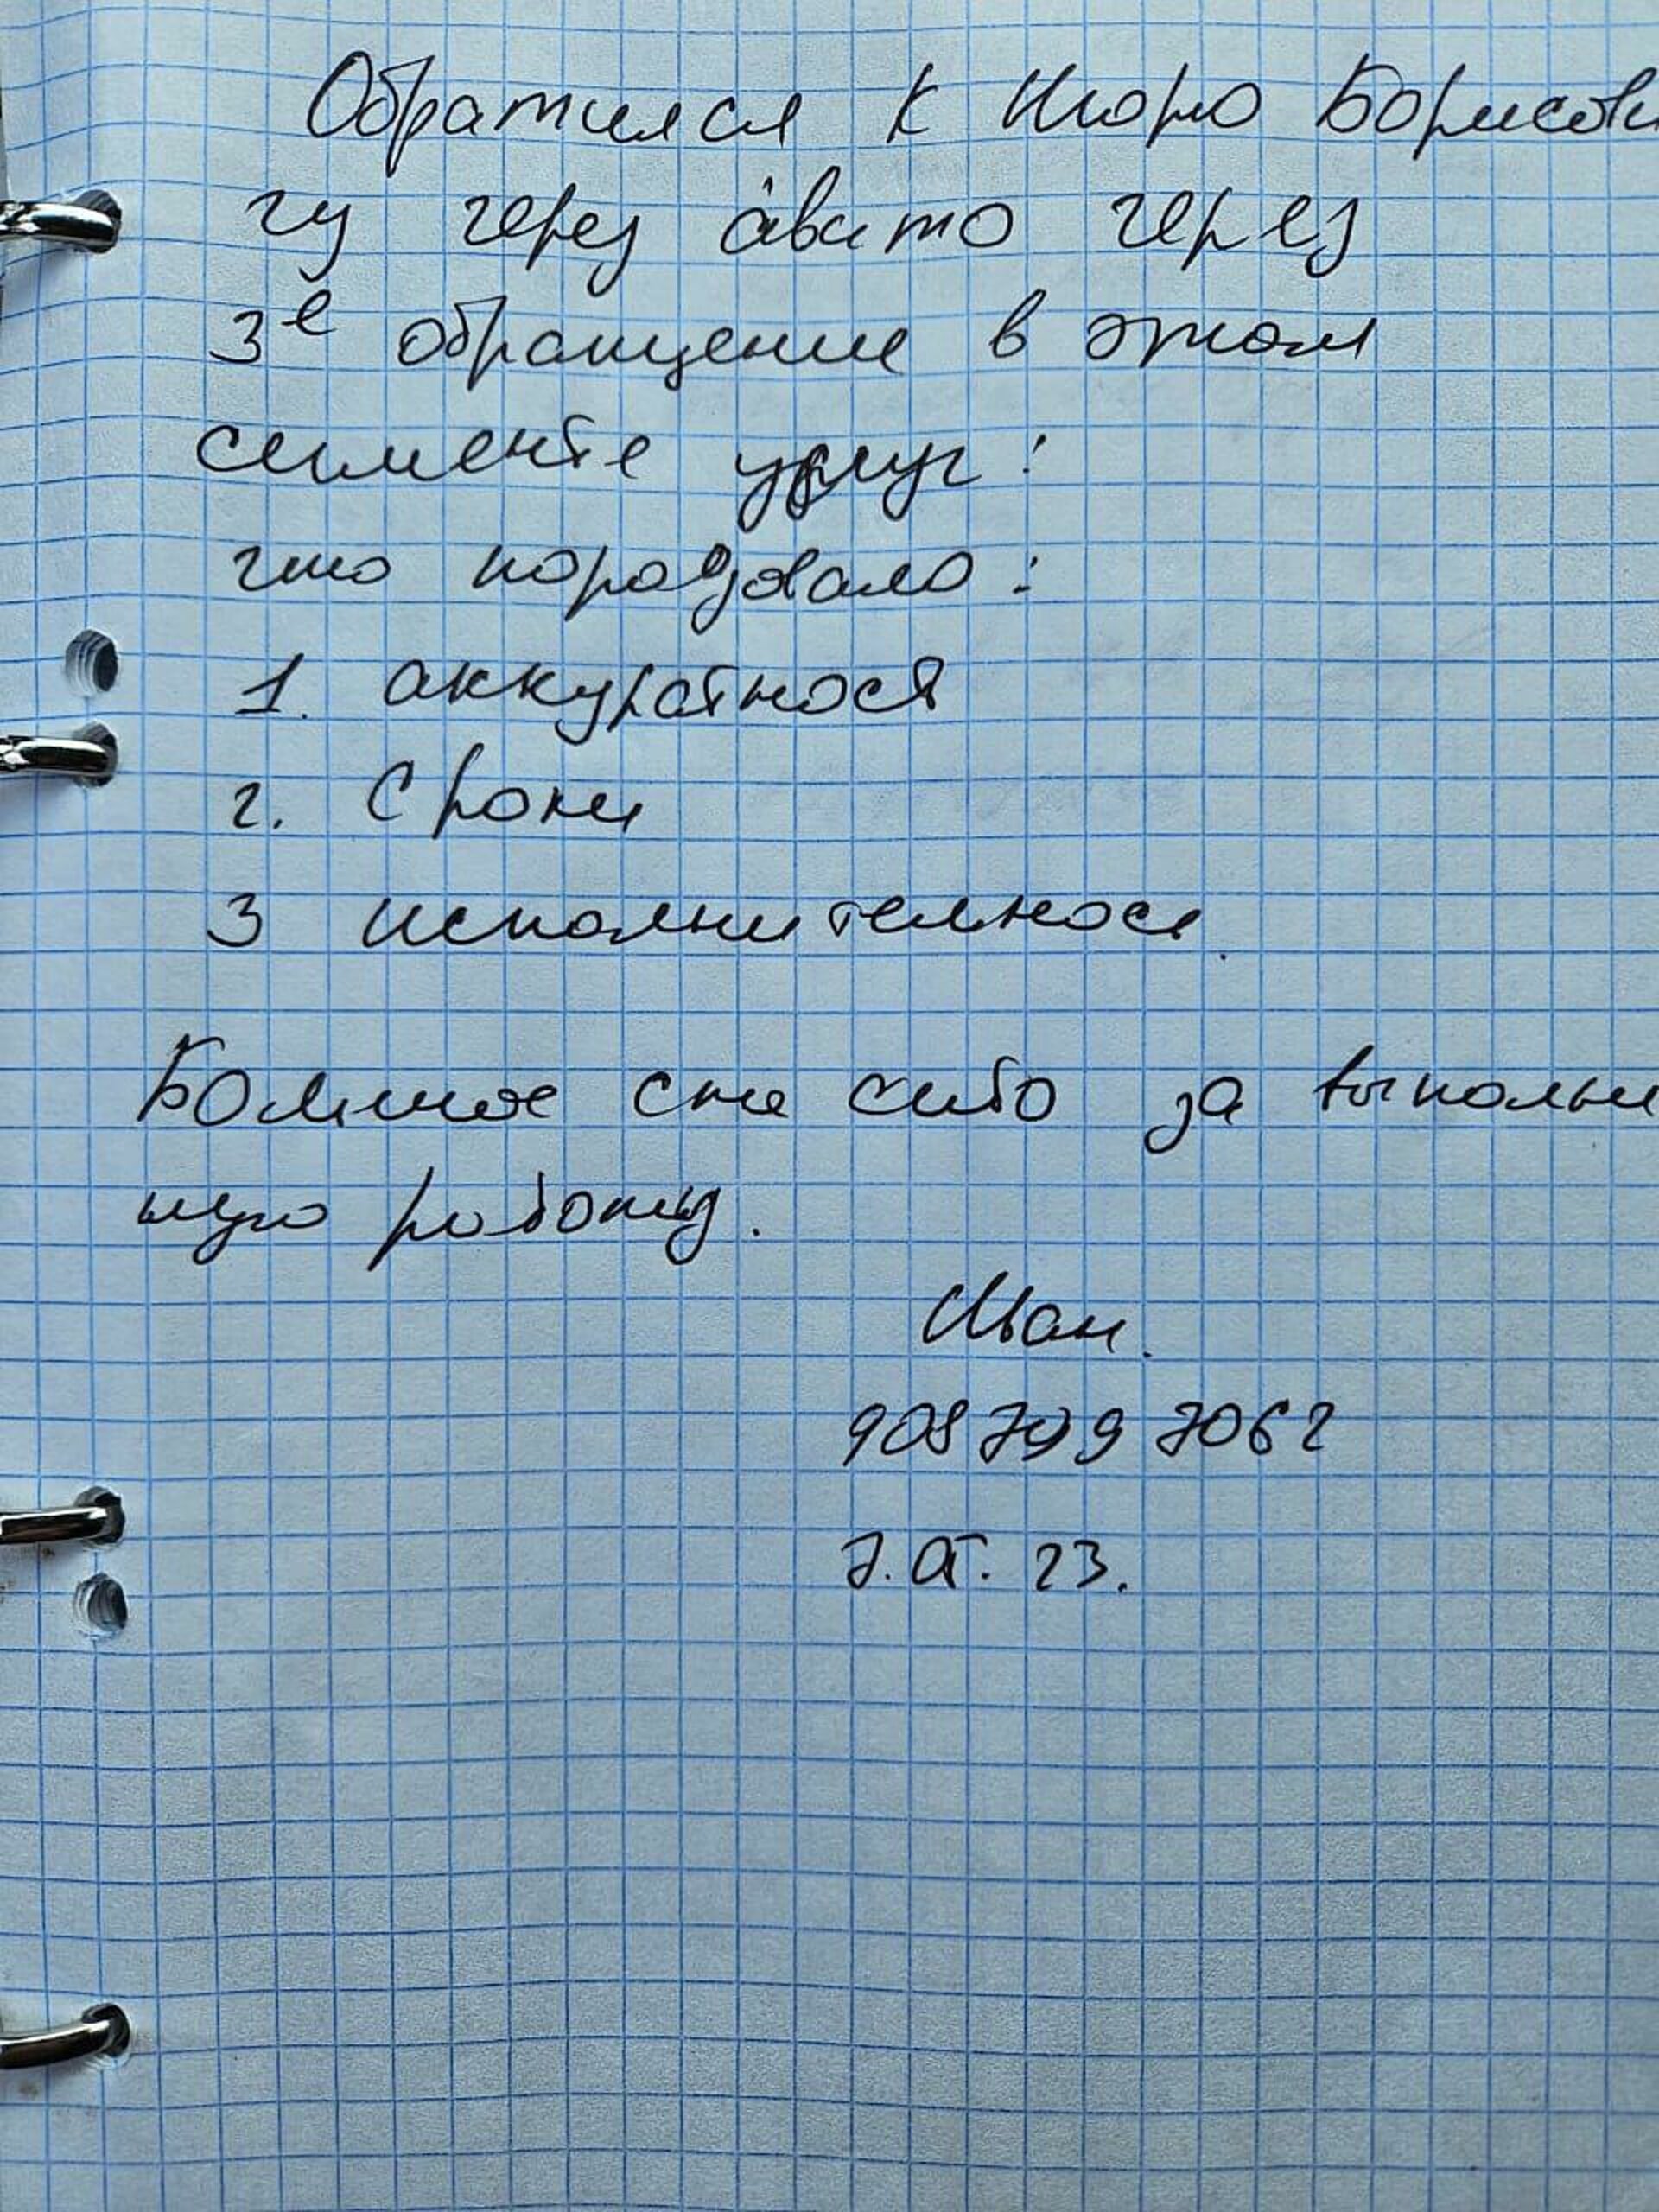 Обратился к Июрю Борисови
чу через авито через
3е обращение в этом
сегменте услуг:
что порадовало:
1. аккуратность
2. Сроки
3 исполнительность.
Большое спасибо за выполнен
ную работу.
Иван.
908 799 7062
7.07.23.